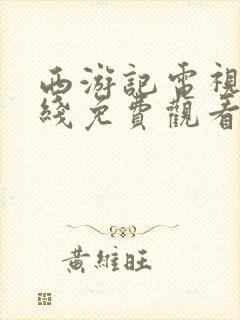 西游記電視
綫免費觀看
黃維旺